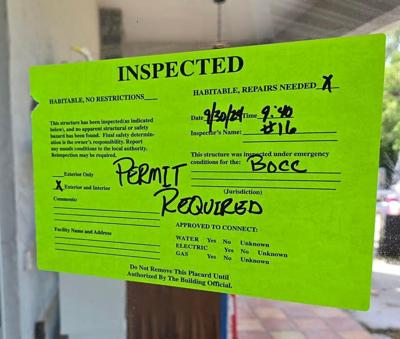 INSPECTED
HABITABLE, NO RESTRICTIONS___
HABITABLE, REPAIRS NEEDED X
This structure has been inspected (as indicated
below), and no apparent structural or safety
hazard has been found. Final safety determin-
ation is the owner's responsibility. Report
any unsafe conditions to the local authority.
Reinspection may be required.
Date 9/30/24 Time 9:40
Inspector's Name: #16
This structure was inspected under emergency
conditions for the: BOCC
(Jurisdiction)
___Exterior Only
X Exterior and Interior
PERMIT
REQUIRED
Comments:
Facility Name and Address
APPROVED TO CONNECT:
WATER Yes No Unknown
ELECTRIC Yes No Unknown
GAS Yes No Unknown
Do Not Remove This Placard Until
Authorized By The Building Official.